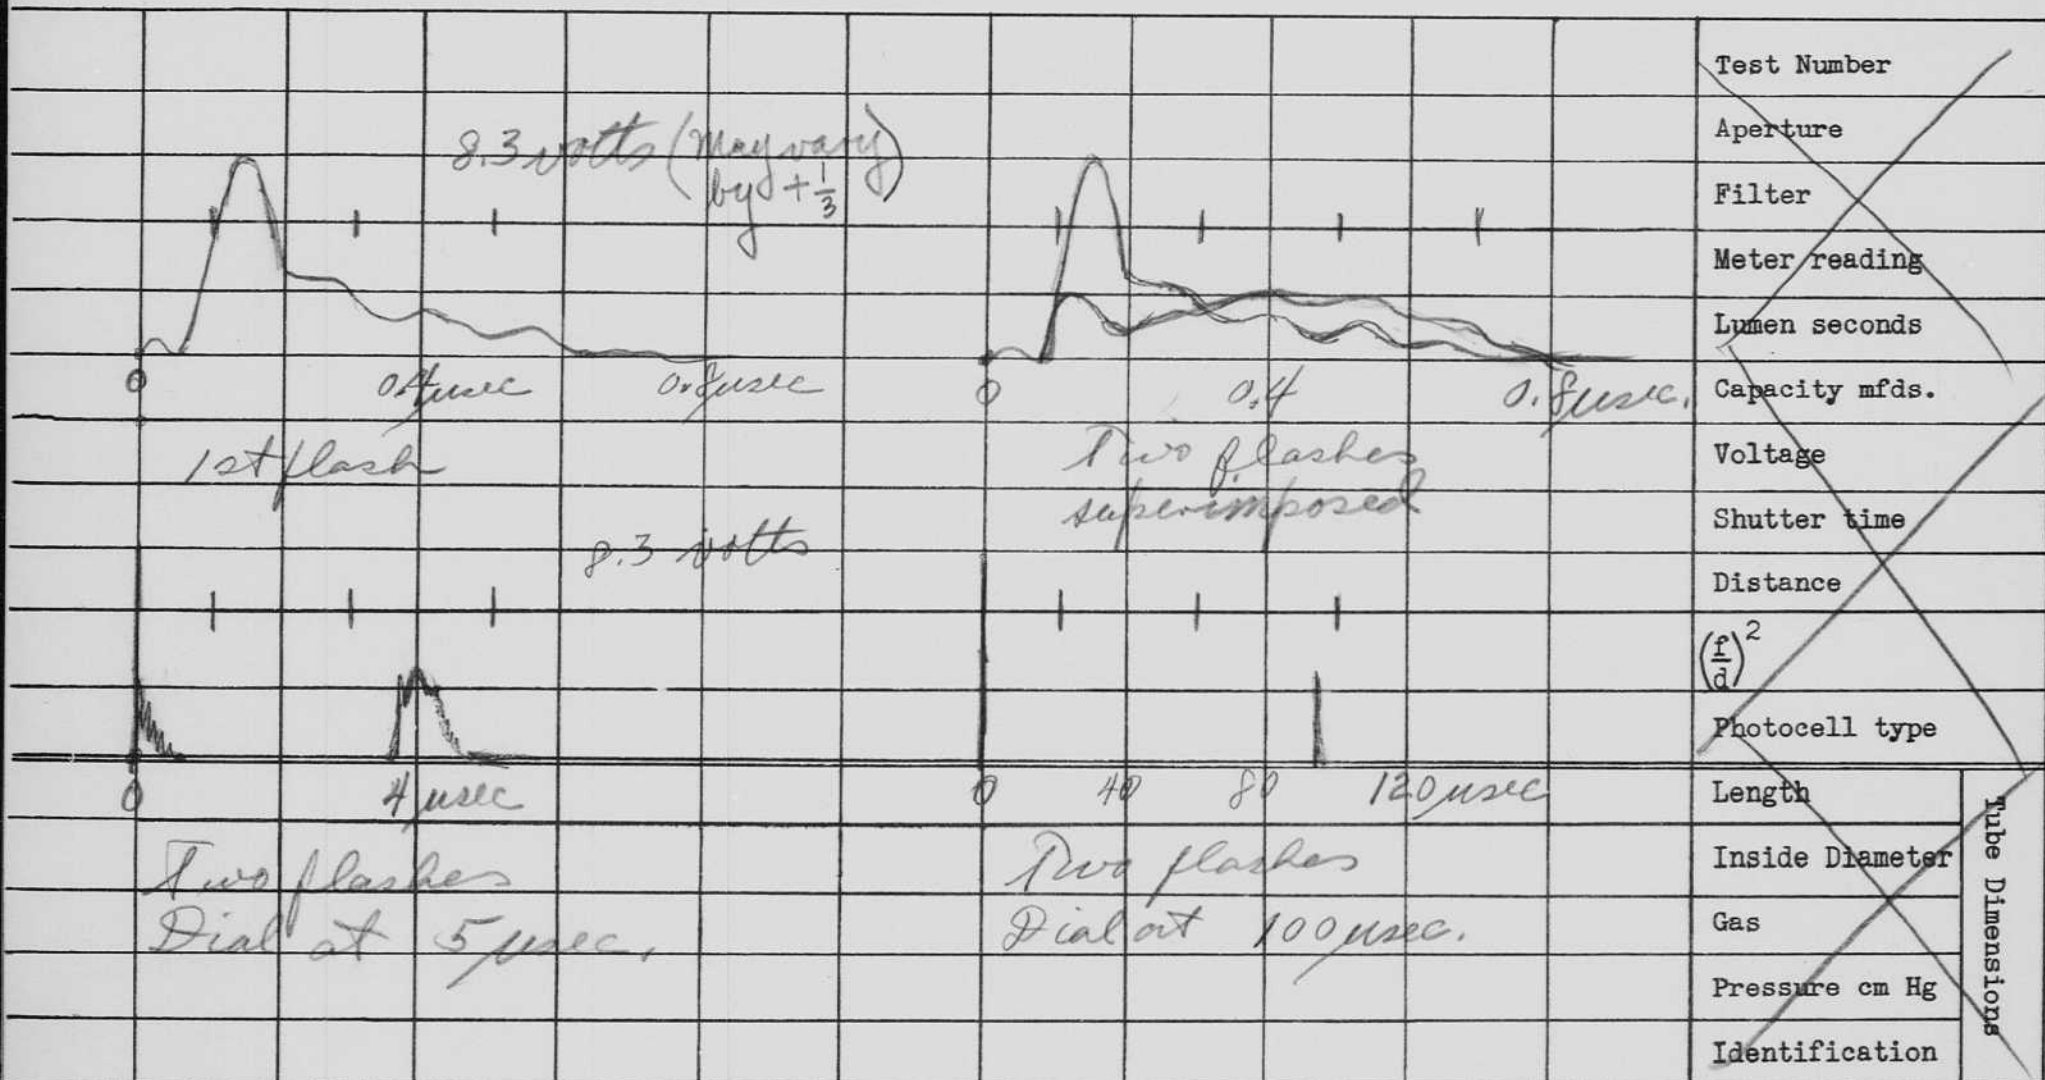 8.3 volts (May vary
by + 1/3)
0 0.4 µsec 0.8 µsec
0 0.4 0.8 µsec.
1st flash
Two flashes
superimposed
8.3 volts
0 4 µsec
0 40 80 120 µsec
Two flashes
Dial at 5 µsec.
Two flashes
Dial at 100 µsec.
Test Number
Aperture
Filter
Meter reading
Lumen seconds
Capacity mfds.
Voltage
Shutter time
Distance
(f/d)²
Photocell type
Length
Inside Diameter
Gas
Pressure cm Hg
Identification
Tube Dimensions